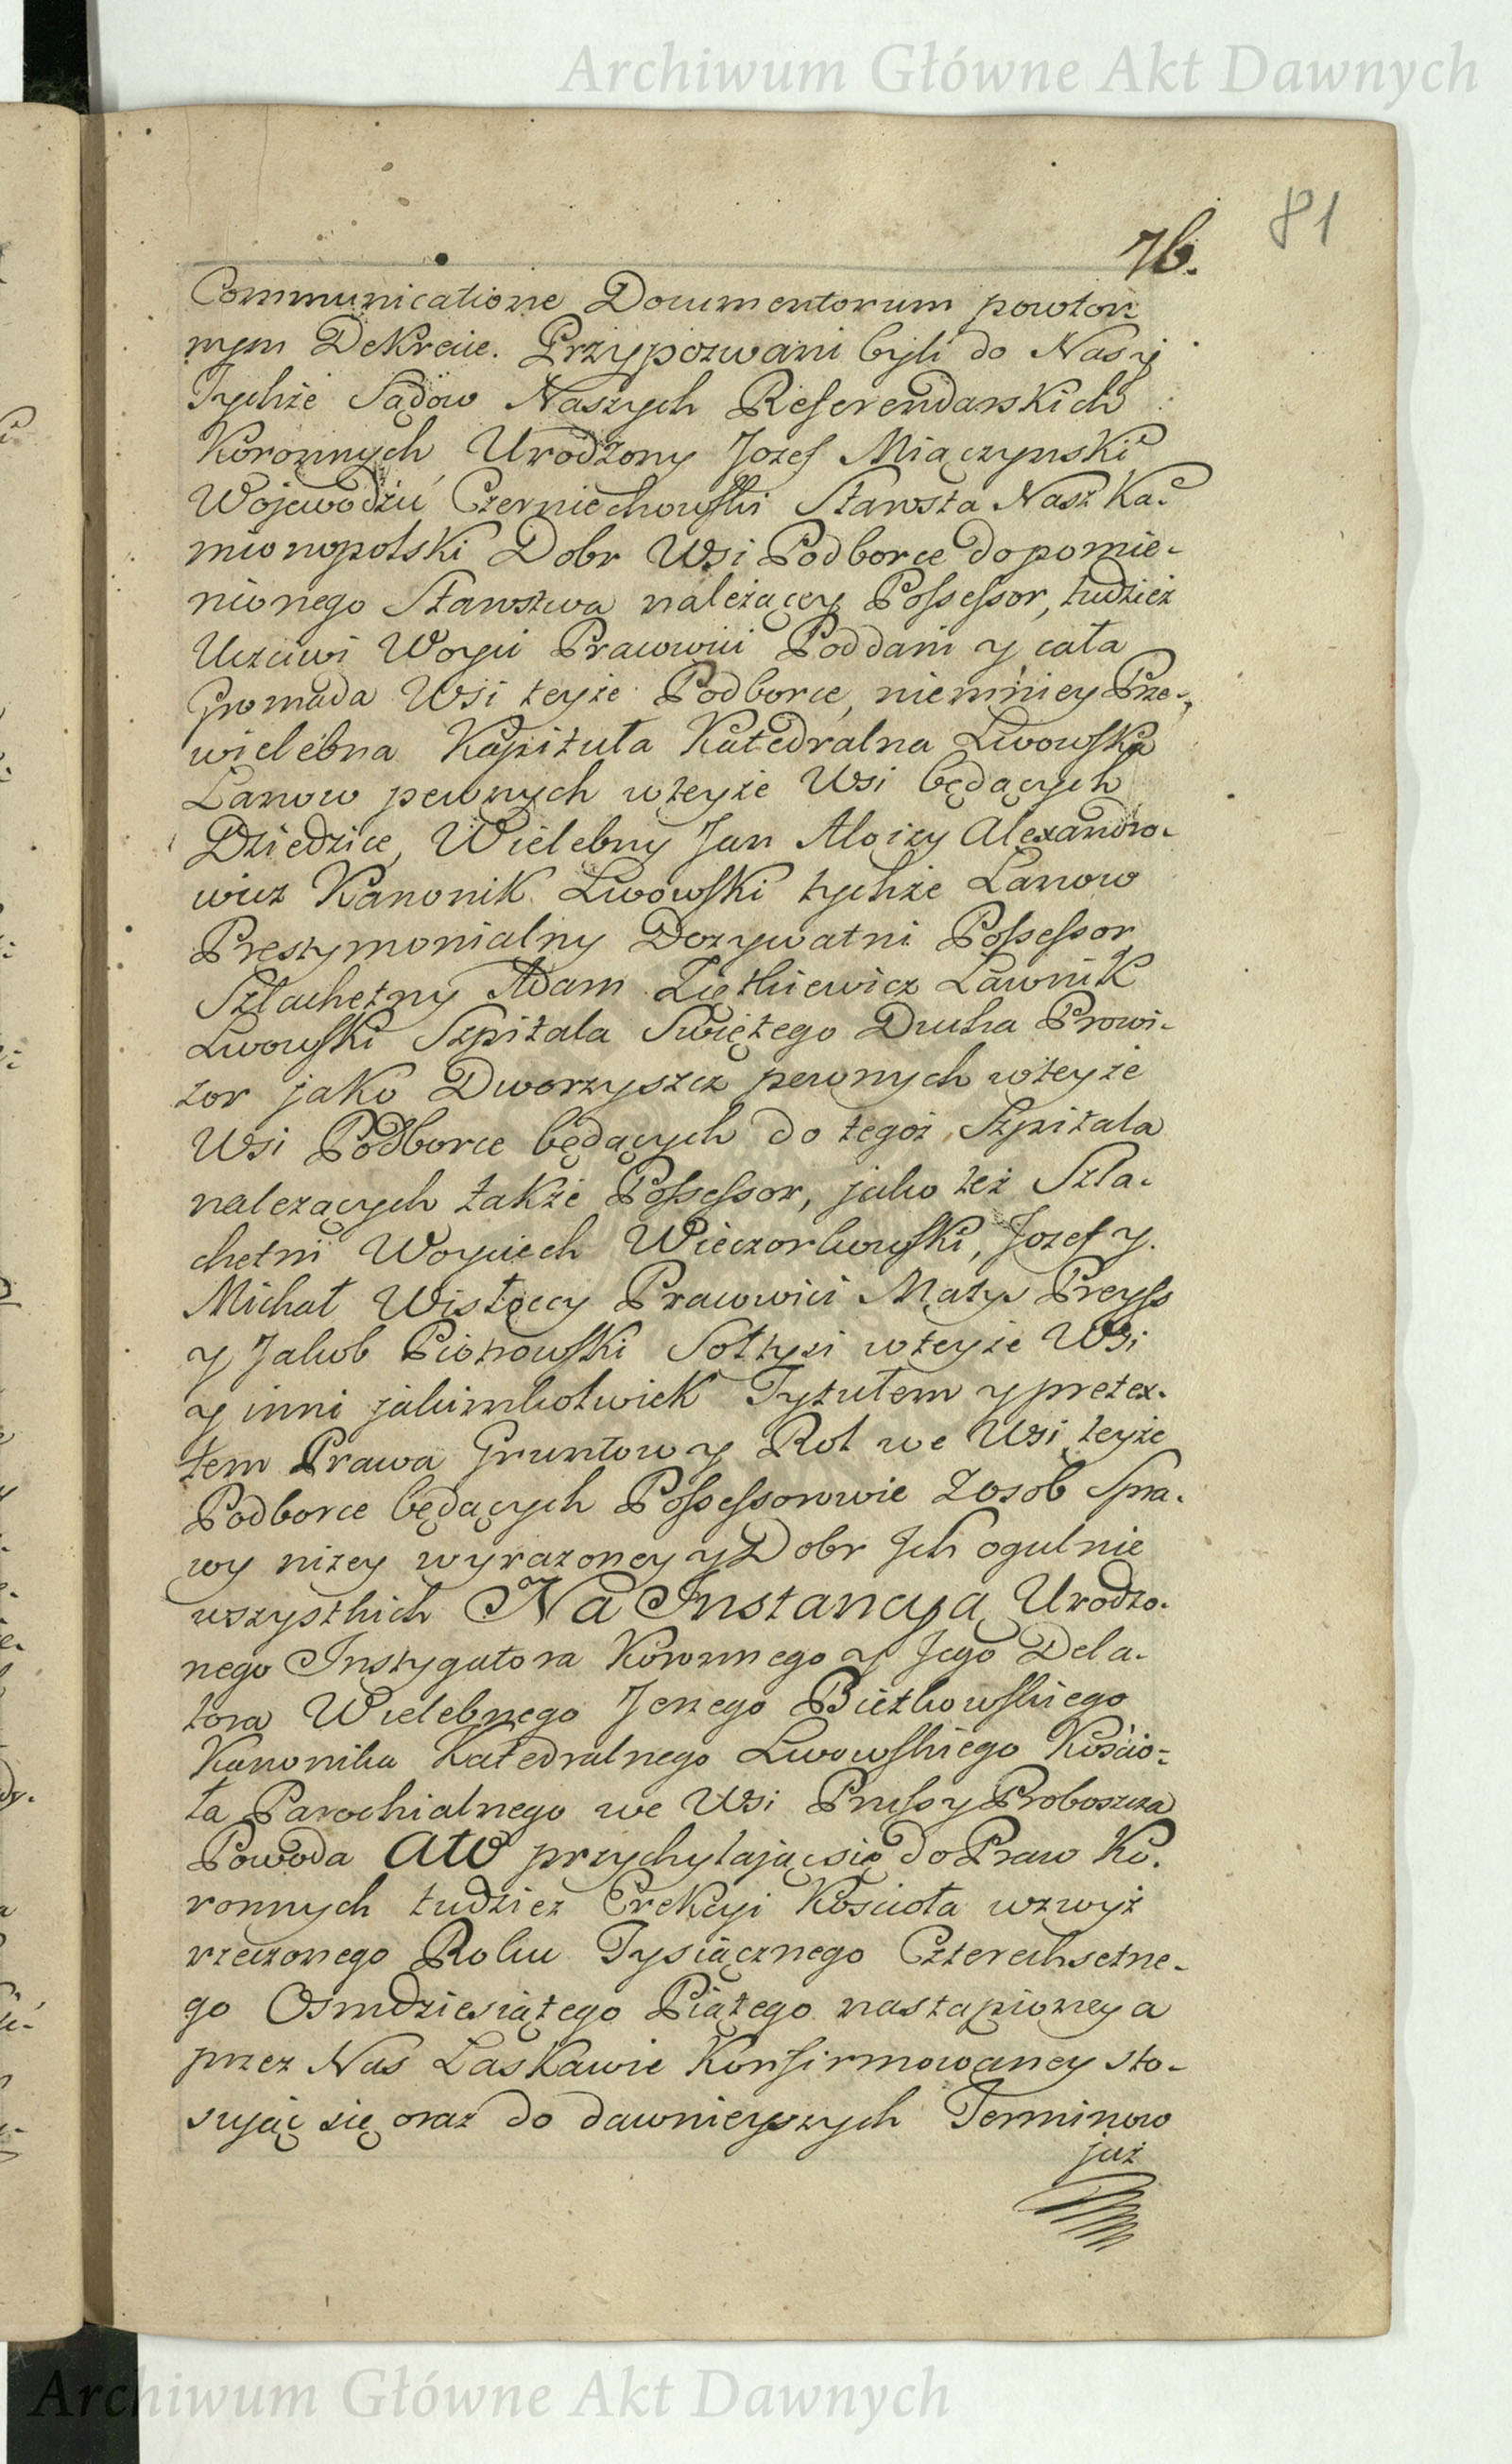 Archiwum Główne Akt Dawnych
81
76.
Communicatione Documentorum powtor
nym Dekrecie. Przypozwani byli do Naszy
Tychże Sądow Naszych Referendarskich
Koronnych Urodzony Jozef Miączynski
Wojewodzic Czerniechowski Starosta Nasz Ka-
mionopolski Dobr Wsi Podborce do pomie-
nionego Starostwa należącey Possessor, tudziez
Uczciwi Woyci Pracowici Poddani y cała
Gromada Wsi teyże Podborce, niemniey Prze-
wielebna Kapituła Katedralna Lwowska
Łanow pewnych w teyże Wsi będących
Dziedzice, Wielebny Jan Aloizy Alexandro-
wicz Kanonik Lwowski tychże Łanow
Prestymonialny Dozywatni Possessor
Szlachetny Adam Ziętkiewicz Ławnik
Lwowski Szpitala Swiętego Ducha Prowi-
zor jako Dworzyszcz pewnych w teyże
Wsi Podborce będących do tegoż Szpitala
nalezących także Possessor, jako też Szla-
chetni Woyciech Wieczorkowski, Jozef y
Michał Wistoccy Pracowici Matys Preyss
y Jakob Piotrowski Sołtysi w teyże Wsi
y inni jakimkolwiek Tytułem y pretex-
tem Prawa Gruntow y Rol we Wsi teyże
Podborce będących Possessorowie z osob Spra-
wy nizey wyrazoney y Dobr Jch ogulnie
wszystkich Na Jnstancyą Urodzo-
nego Jnstygatora Koronnego y Jego Dela-
tora Wielebnego Jerzego Bietkowskiego
Kanonika Katedralnego Lwowskiego Kościo-
ła Parochialnego we Wsi Prussy Proboszcza
Powoda A to przychylając się do Praw Ko-
ronnych tudziez Erekcyi Kościoła wzwyż
rzeczonego Roku Tysiącznego Czterechsetne-
go Osmdziesiątego Piątego nastąpioney a
przez Nas Łaskawie Konfirmowaney sto-
sując się oraz do dawnieyszych Terminow
już
Archiwum Główne Akt Dawnych